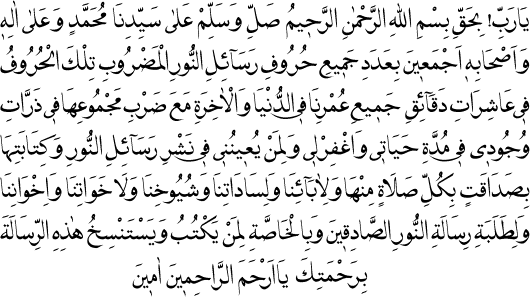 يَارَبِّ! بِحَقِّ بِسْمِ اللهِ الرَّحْمٰنِ الرَّحِيمِ صَلِّ وَسَلِّمْ عَلٰى سَيِّدِنَا مُحَمَّدٍ وَعَلٰى اٰلِهِ
وَاَصْحَابِهِ اَجْمَعِينَ بِعَدَدِ جَمِيعِ حُرُوفِ رَسَائِلِ النُّورِ الْمَضْرُوبِ تِلْكَ الْحُرُوفُ
فِى عَاشِرَاتِ دَقَائِقِ جَمِيعِ عُمْرِنَا فِى الدُّنْيَا وَالْاٰخِرَةِ مَعَ ضَرْبِ مَجْمُوعِهَا فِى ذَرَّاتِ
وُجُودِى فِى مُدَّةِ حَيَاتِى وَاغْفِرْلِى وَلِمَنْ يُعِينُنِى فِى نَشْرِ رَسَائِلِ النُّورِ وَكِتَابَتِهَا
بِصَدَاقَتٍ بِكُلِّ صَلَاةٍ مِنْهَا وَلِاٰبَائِنَا وَلِسَادَاتِنَا وَشُيُوخِنَا وَلِاَخَوَاتِنَا وَاِخْوَانِنَا
وَلِطَلَبَةِ رِسَالَةِ النُّورِ الصَّادِقِينَ وَبِالْخَاصَّةِ لِمَنْ يَكْتُبُ وَيَسْتَنْسِخُ هٰذِهِ الرِّسَالَةَ
بِرَحْمَتِكَ يَااَرْحَمَ الرَّاحِمِينَ اٰمِينَ